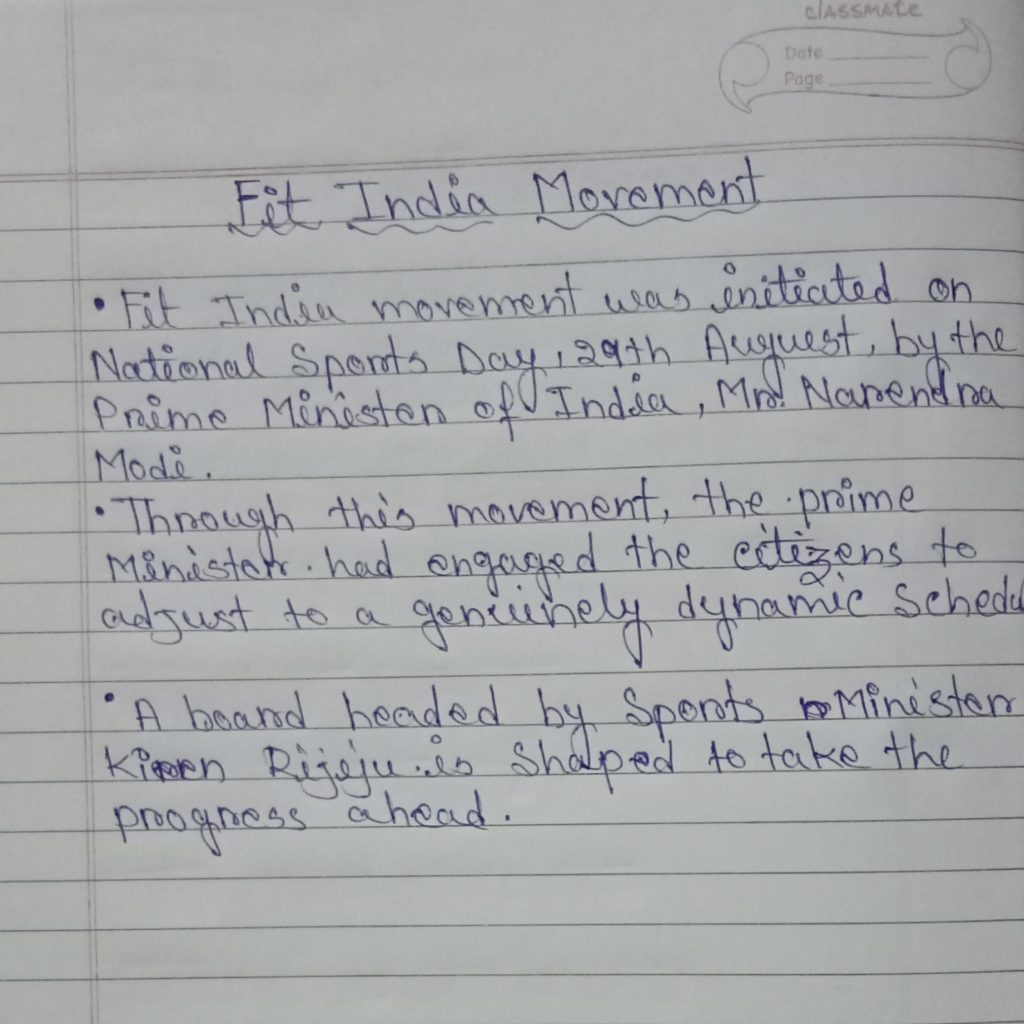 classmate
Date
Page
Fit India Movement
• Fit India movement was initiated on
National Sports Day, 29th August, by the
Prime Minister of India, Mr. Narendra
Modi.
• Through this movement, the prime
Minister had engaged the citizens to
adjust to a genuinely dynamic Schedu
• A board headed by Sports Minister
Kiren Rijeju is Shaped to take the
progress ahead.